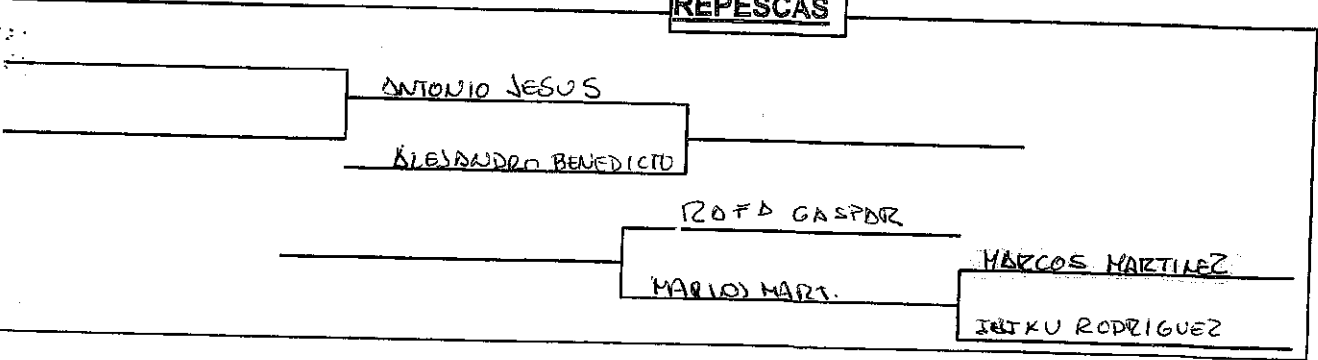 REPESCAS
ANTONIO JESUS
ALEJANDRO BENEDICTO
RAFA GASPAR
MARCOS MARTINEZ
MARCOS MART.
RODRIGUEZ